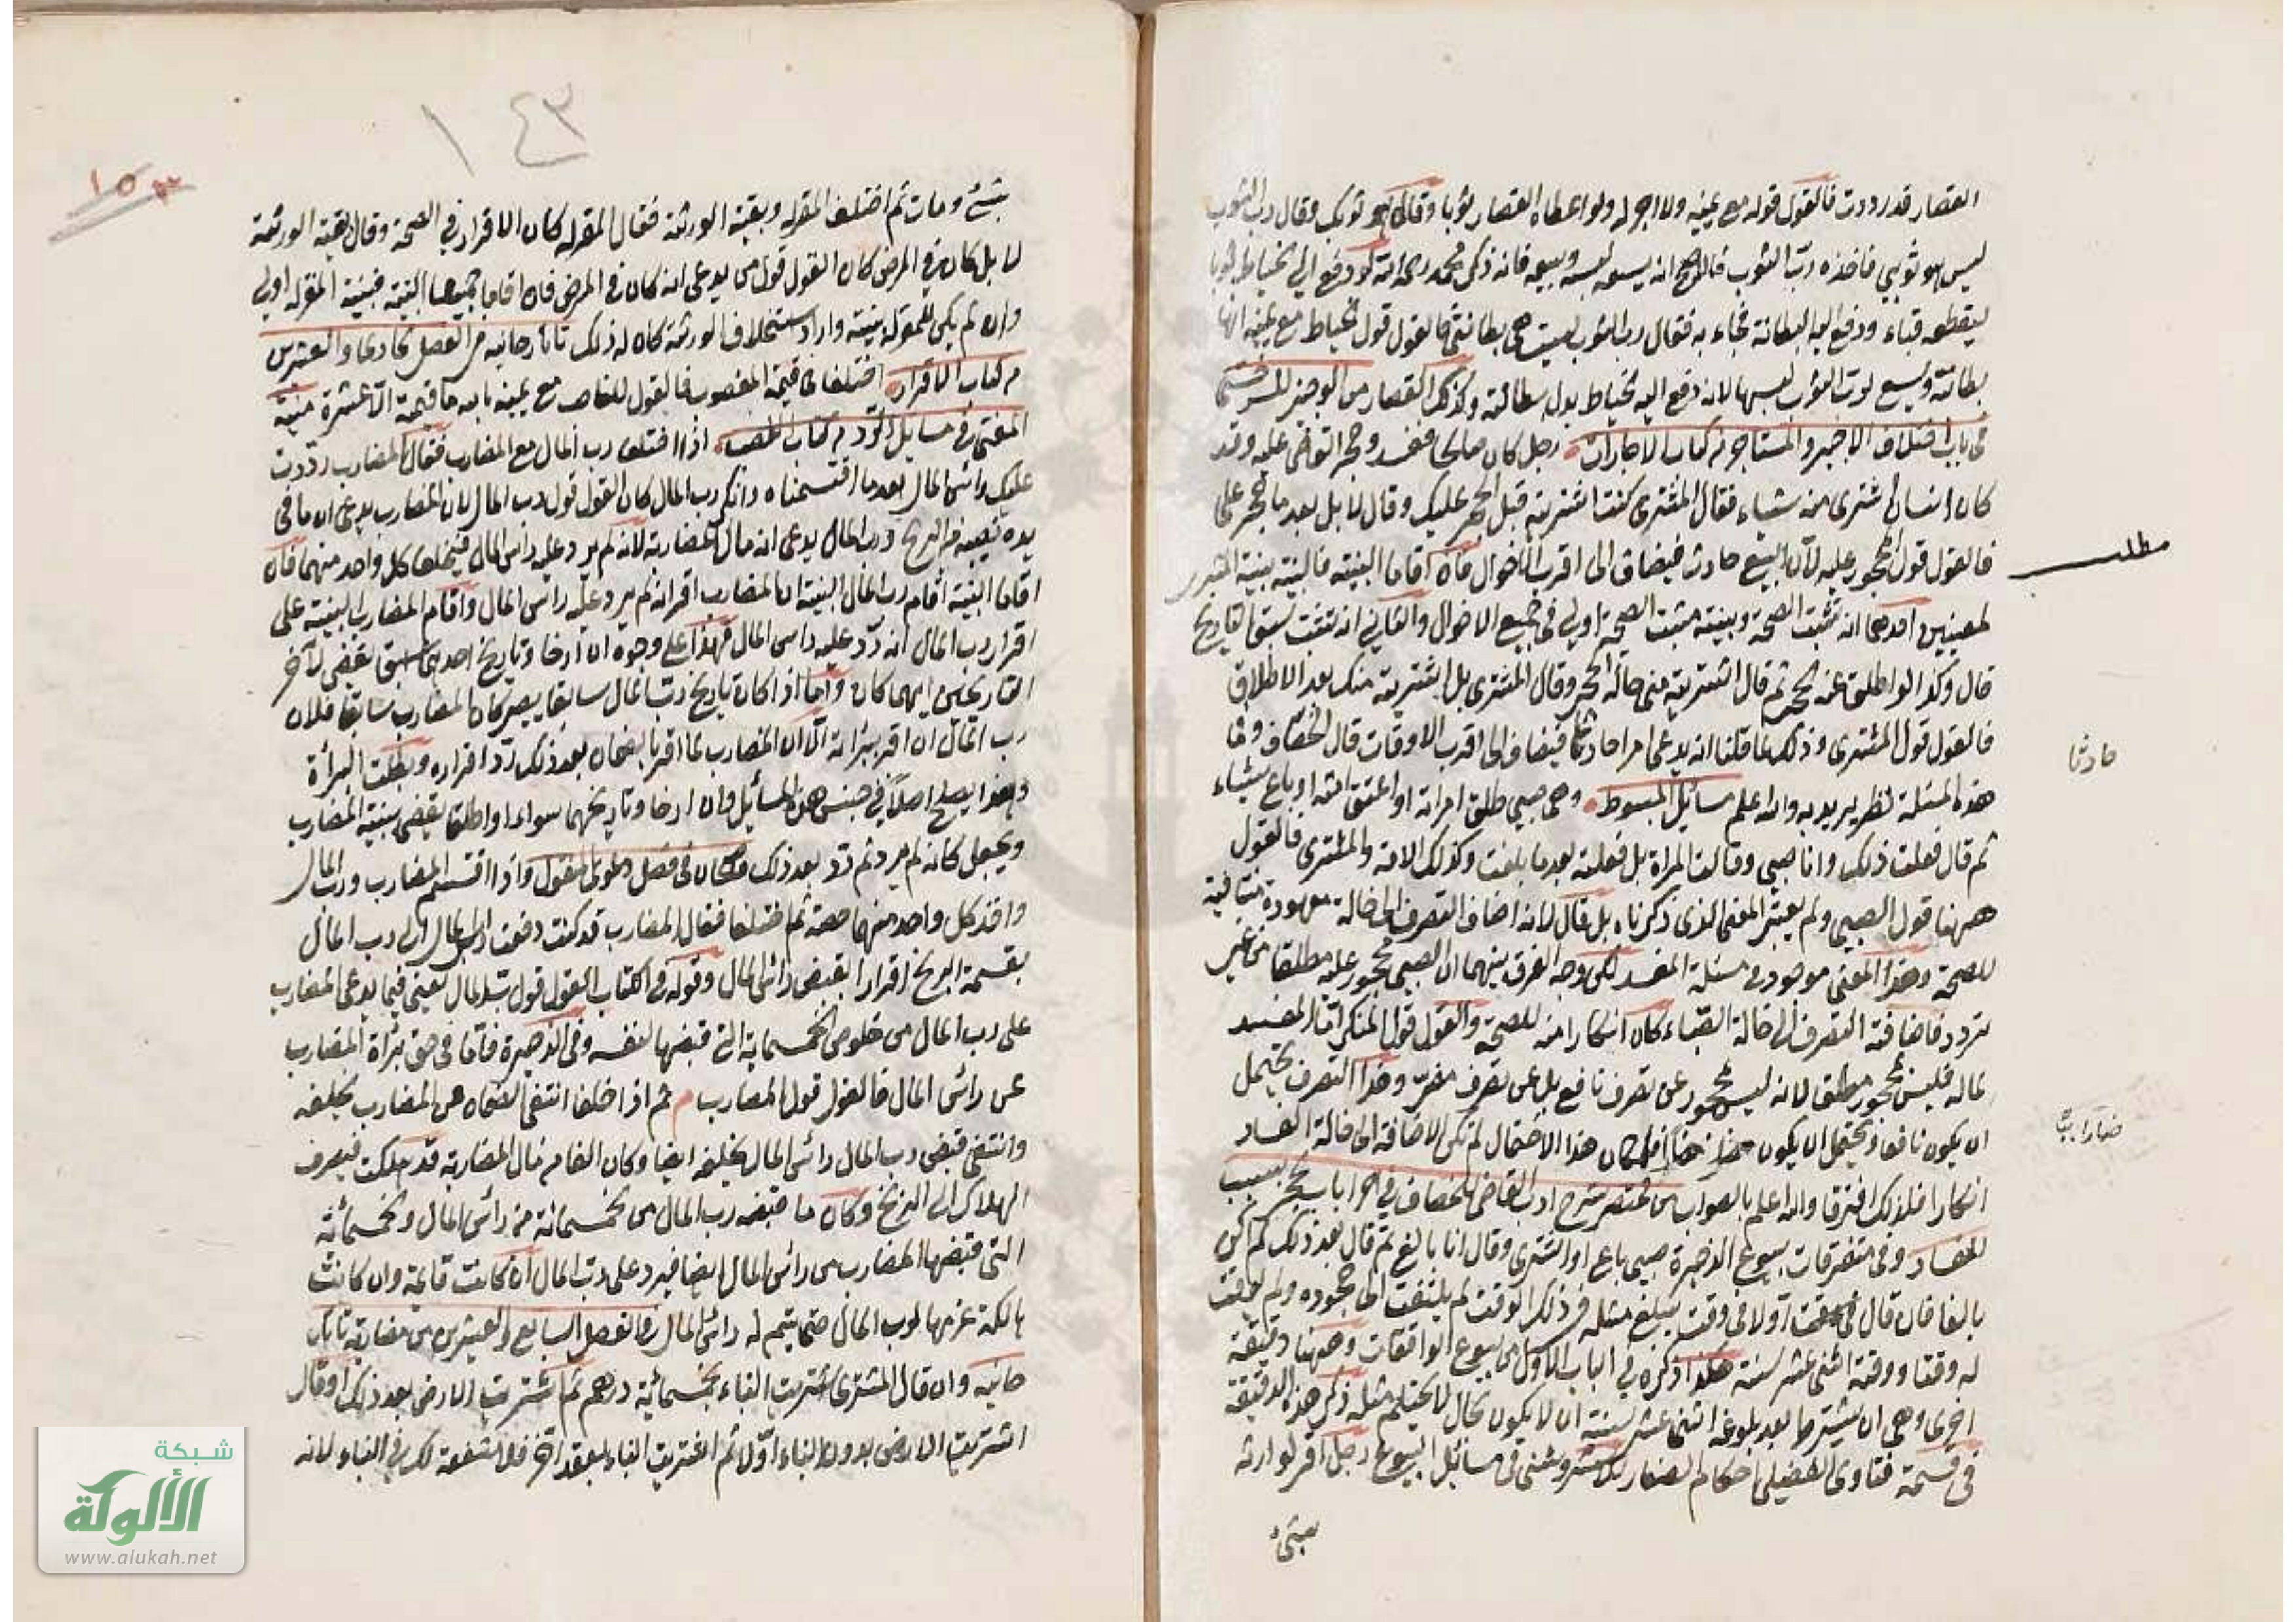 القصار قد رددت فالقول قوله مع يمينه ولا اجر له ولو اعطاه القصار ثوبا وقال هو ثوبك وقال رب الثوب
ليس هو ثوبي فاخذه رب الثوب انه يسعه لبسه وبيعه فانه ذكر محمد رحمه الله لو دفع الى خياط ثوبا
ليقطعه قباء ودفع اليه البطانة فجاء به فقال رب الثوب ليست هي بطانتي فالقول قول الخياط مع يمينه انها
بطانته ويسع لرب الثوب لبسها لانه دفع اليه الخياط بدل بطانته وكذلك القصار من الوجيز للسرخسي
في باب اختلاف الاجير والمستاجر من كتاب الاجارات رجل كان صالحا ففسد وحجر القاضي عليه وقد
كان انسان اشترى منه شياء فقال المشترى كنت اشتريته قبل الحجر عليك وقال لا بل بعد ما حجر على
فالقول قول المحجور عليه لان البيع حادث فيضاف الى اقرب الاحوال فان اقاما البينة فالبينة بينة المشترى
لمعنيين احدهما انه تثبت الصحة وبينة مثبت الصحة اولى في جميع الاحوال والثاني انه تثبت سبق التاريخ
قال وكذا لو اطلق عنه الحجر ثم قال اشتريته مني حالة الحجر وقال المشترى بل اشتريته منك بعد الاطلاق
فالقول قول المشترى وذلك لما قلنا انه يدعى امرا حادثا فيضاف الى اقرب الاوقات قال الخصاف
هذه المسئلة نظير والله اعلم مسائل المبسوط وهي صبي طلق امراته او اعتق امته او باع شياء
ثم قال فعلت ذلك وانا صبي وقالت المراة بل فعلته بعد ما بلغت وكذلك الامة والمشترى فالقول
ههنا قول الصبي ولم يعتبر المعنى الذى ذكرناه بل قال لانه اضاف التصرف الى حالة معهودة منافية
للصحة وهذا المعنى موجود في مسئلة المفسد لكن وجه الفرق بينهما ان الصبي محجور عليه مطلقا من غير
تردد فاضافة التصرف الى حالة الصباء كان انكارا منه للصحة والقول قول المنكر اما المفسد
لماله فليس محجور مطلق لانه ليس محجور عن تصرف نافع بل عن تصرف مضر وهذا التصرف يحتمل
ان يكون نافعا ويحتمل ان يكون ضارا كان هذا الاحتمال لم تكن الاضافة الى حالة الفساد
انكارا فلذلك افترقا والله اعلم بالصواب من مختصر شرح ادب القاضي للخصاف في باب الحجر بسبب
الفساد وفي متفرقات بيوع الذخيرة صبي باع او اشترى وقال انا بالغ ثم قال بعد ذلك لم اكن
بالغا فان قال اولا في وقت يبلغ مثله في ذلك الوقت لم يلتفت الى جحوده ولم يوقت
له وقتا ووقته اثنى عشر سنة هكذا ذكره في الباب الاول من بيوع الواقعات وههنا دقيقة
اخرى وهي ان يشترط بعد بلوغه اثنى عشر سنة ان لا يكون بحال لا يحتلم مثله ذكر هذه الدقيقة
في قسمة فتاوى الفضيلي احكام الصغار في مسائل البيوع رجل اقر لوارثه
بشئ
مطلب
حادثا
ضارا
١٤٣
١٥٣
بشئ ومات ثم اختلف المقر له وبقية الورثة فقال المقر له كان الاقرار في الصحة وقال بقية الورثة
لا بل كان في المرض كان القول قول من يدعى انه كان في المرض فان اقاما جميعا البينة فبينة المقر له اولى
وان لم يكن للمقر له بينة واراد استحلاف الورثة كان له ذلك تاتارخانيه من الفصل الحادى والعشرين
من كتاب الاقرار اختلفا في قيمة المغصوب فالقول للغاصب مع يمينه بالله ما قيمته الا عشرة منية
المفتى في مسائل الرد من كتاب الغصب اذا اختلف رب المال مع المضارب فقال المضارب رددت
عليك راس المال بعد ما اقتسمناه وانكر رب المال كان القول قول رب المال لان المضارب يدعى ان ما في
يده نصيبه من الربح ورب المال يدعى انه مال المضاربة لانه لم يرد عليه راس المال فيحلف كل واحد منهما فان
اقاما البينة اقام رب المال البينة ان المضارب اقر انه لم يرد عليه راس المال واقام المضارب البينة على
اقرار رب المال انه رد عليه راس المال فهذا على وجوه ان ارخا وتاريخ احدهما سبق يقضى لآخر
التاريخين ايهما كان واما اذا كان تاريخ رب المال سابقا كان المضارب سابقا فلان
رب المال ان اقر ببراءته الا ان المضارب لما اقر بالضمان بعد ذلك رد اقراره وبطلت البرأة
وهذا يصلح اصلا في جنس هذه المسائل وان ارخا وتاريخهما سواء او اطلقا يقضى ببينة المضارب
ويجعل كانه لم يرد ثم رد بعد ذلك في فصل واذا اقتسم المضارب ورب المال
واخذ كل واحد منهما حصته ثم اختلفا فقال المضارب قد كنت دفعت راس المال الى رب المال
بقسمة الربح اقرارا بقبض راس المال وقوله في الكتاب القول قول رب المال يعنى فيما يدعى المضارب
على رب المال من خلوص الخمسماية التي قبضها لنفسه وفي الذخيرة فاما في حق برأة المضارب
عن راس المال فالقول قول المضارب م ثم اذا حلفا انتفى الضمان عن المضارب بحلفه
وانتفى قبض رب المال راس المال بحلفه ايضا وكان القائم مال المضاربة قد هلكت فيصرف
الهلاك الى الربح وكان ما قبضه رب المال من الخمسمائة من راس المال والخمسمائة
التى قبضها المضارب من راس المال ايضا فيرد على رب المال ان كانت قائمة وان كانت
هالكة غرمها لرب المال حتى يتم له راس المال من الفصل السابع والعشرين من مضاربة تاتار
خانيه وان قال المشترى اشتريت البناء بخمسماية درهم ثم اشتريت الارض بعد ذلك او قال
اشتريت الارض بدون البناء اولا ثم اشتريت البناء بعقد اخر فلا شفعة لك في البناء لانه
شبكة
الألوكة
www.alukah.net